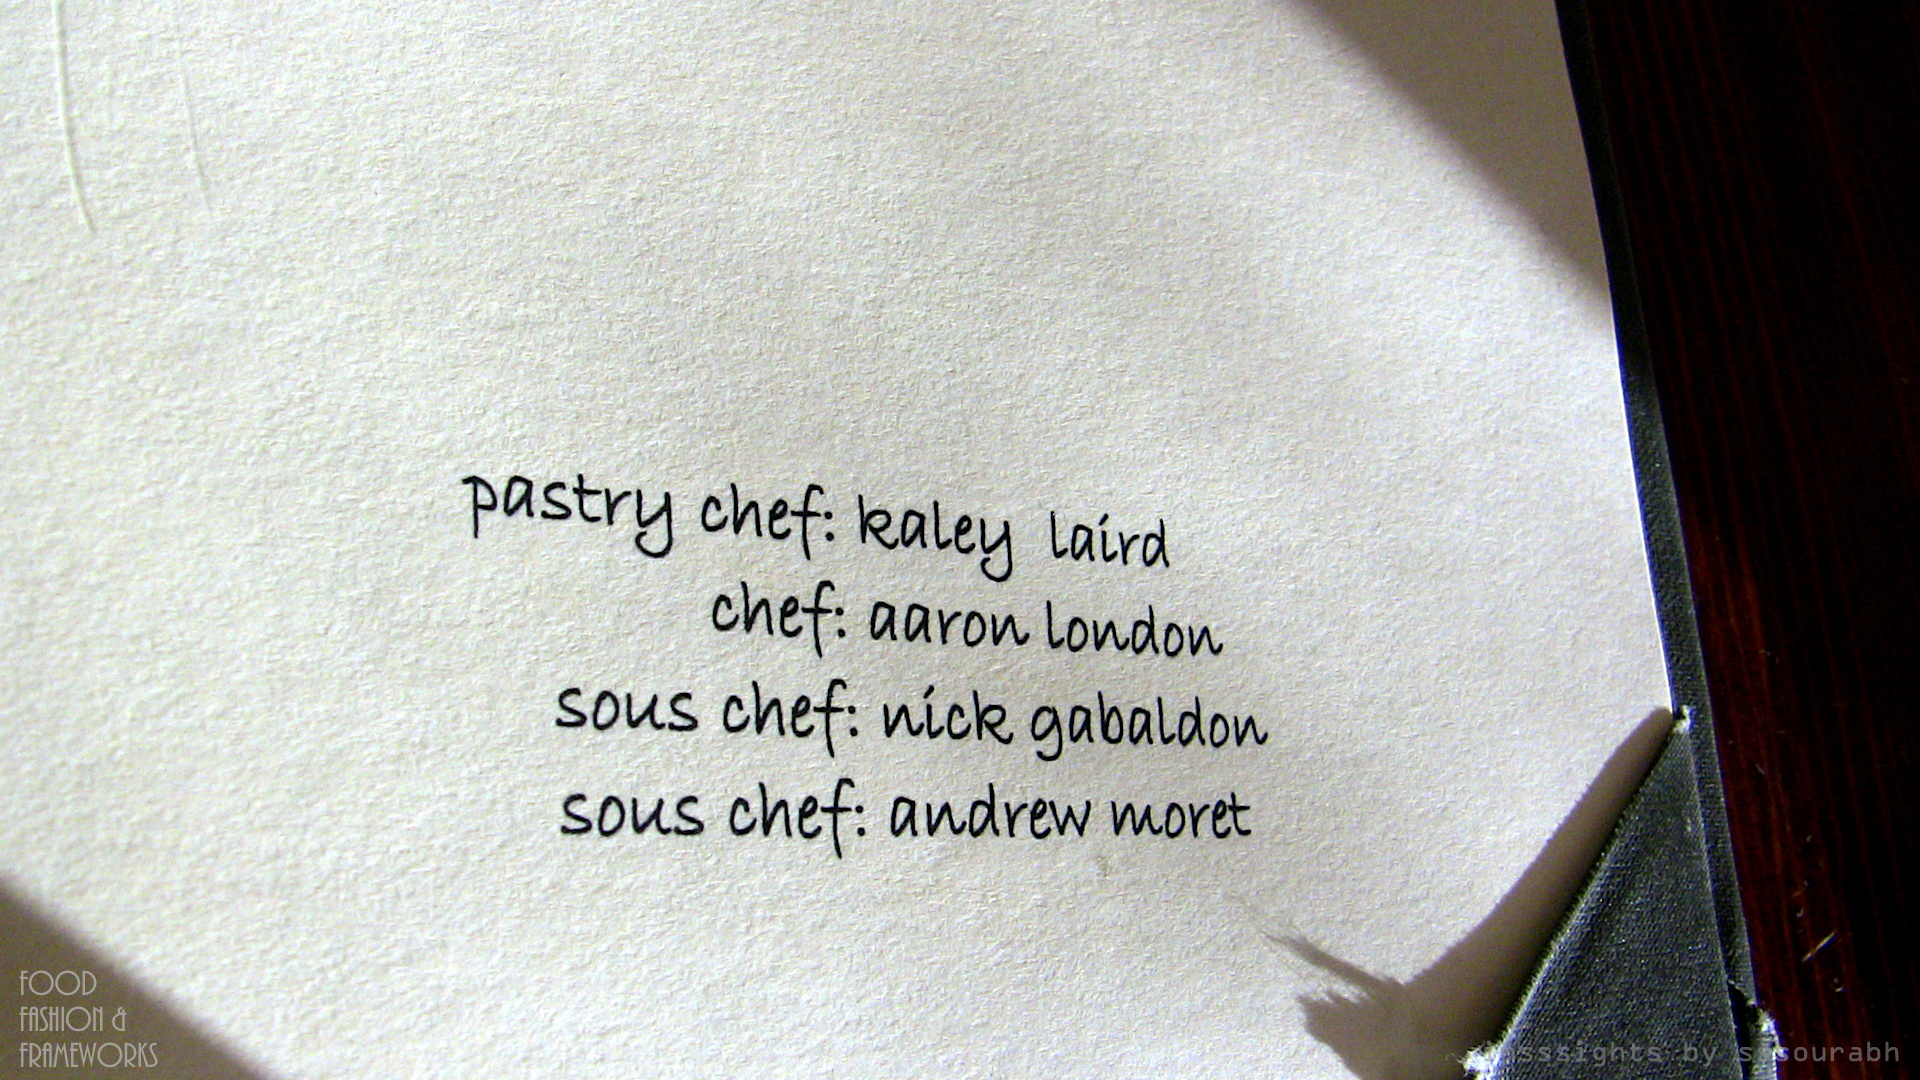 pastry chef: kaley laird
chef: aaron london
sous chef: nick gabaldon
sous chef: andrew moret
FOOD
FASHION &
FRAMEWORKS
by